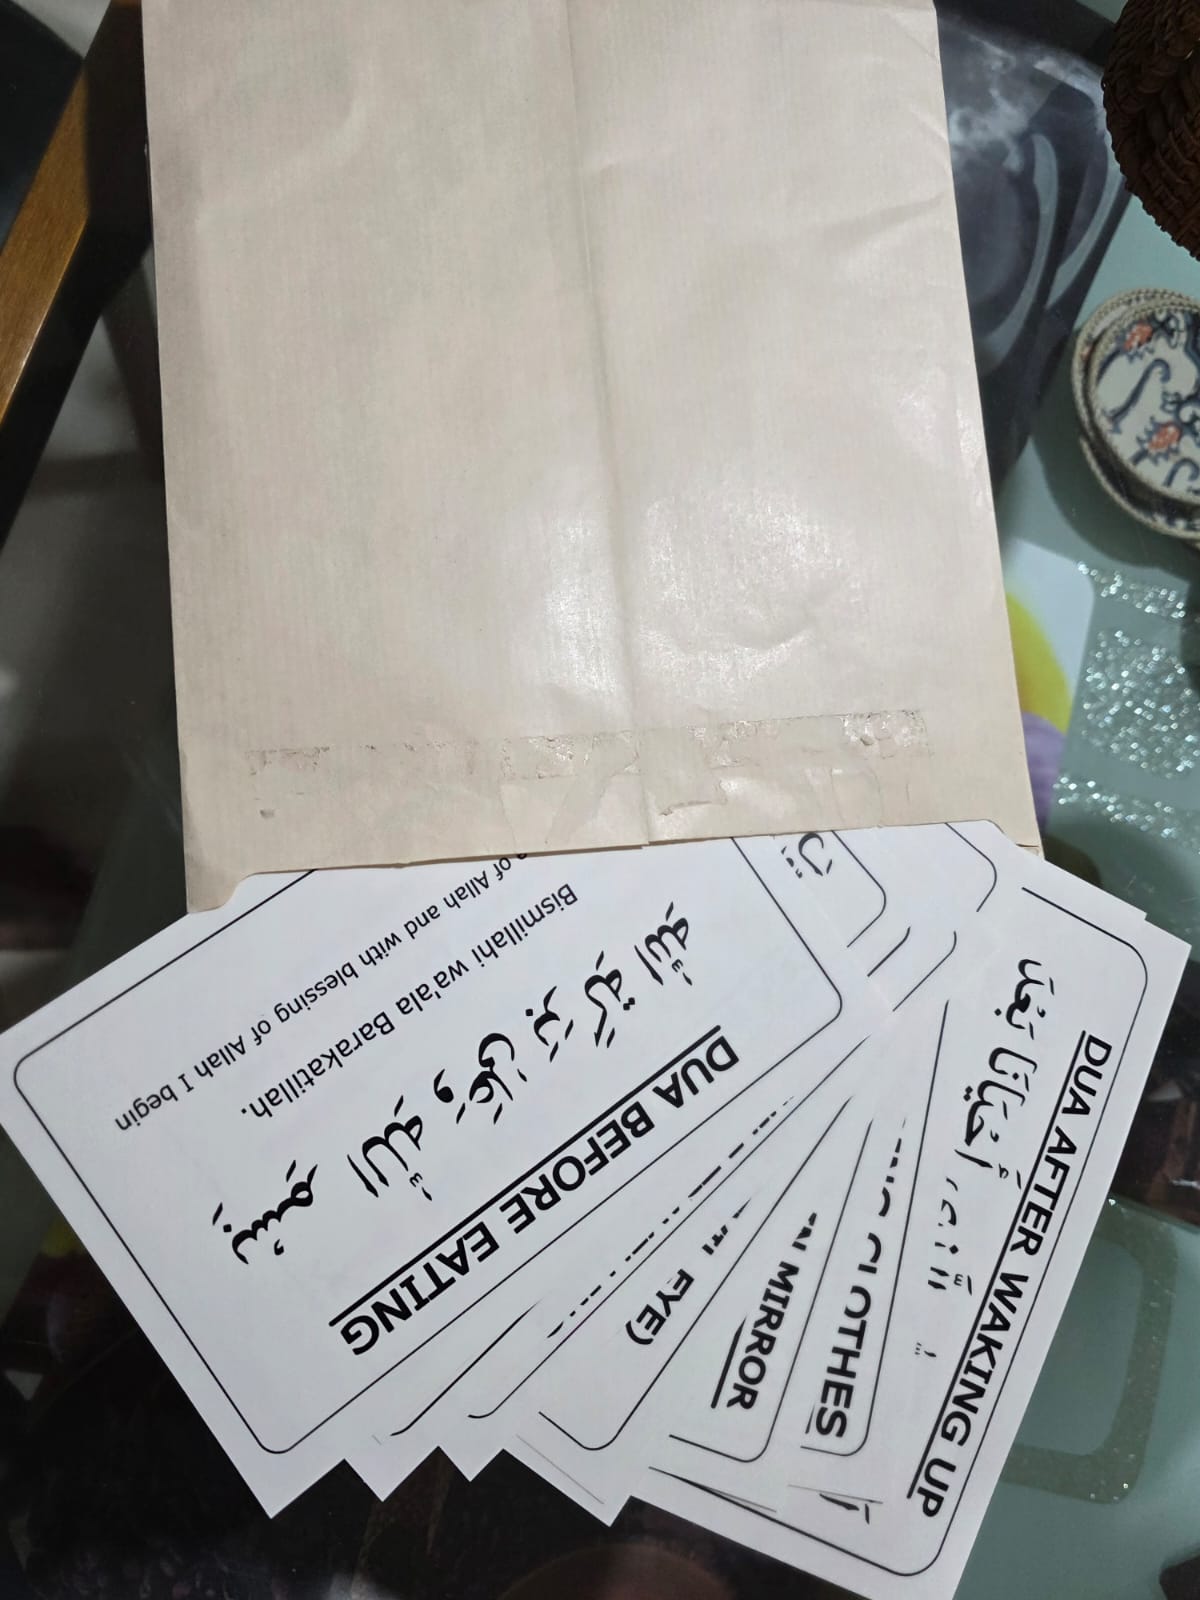 DUA BEFORE EATING
بِسْمِ اللّٰهِ وَعَلىٰ بَرَكَةِ اللّٰهِ
Bismillahi wa'ala Barakatillah.
of Allah and with blessing of Allah I begin
EYE)
MIRROR
CLOTHES
DUA AFTER WAKING UP
أَحْيَانَا بَعْدَ